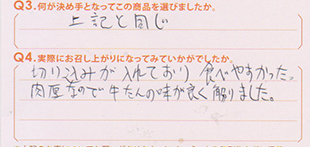 Q3.何が決め手となってこの商品を選びましたか。
上記と同じ
Q4.実際にお召し上がりになってみていかがでしたか。
切り込みが入れており 食べやすかった。
肉厚なので牛たんの味が良く解りました。